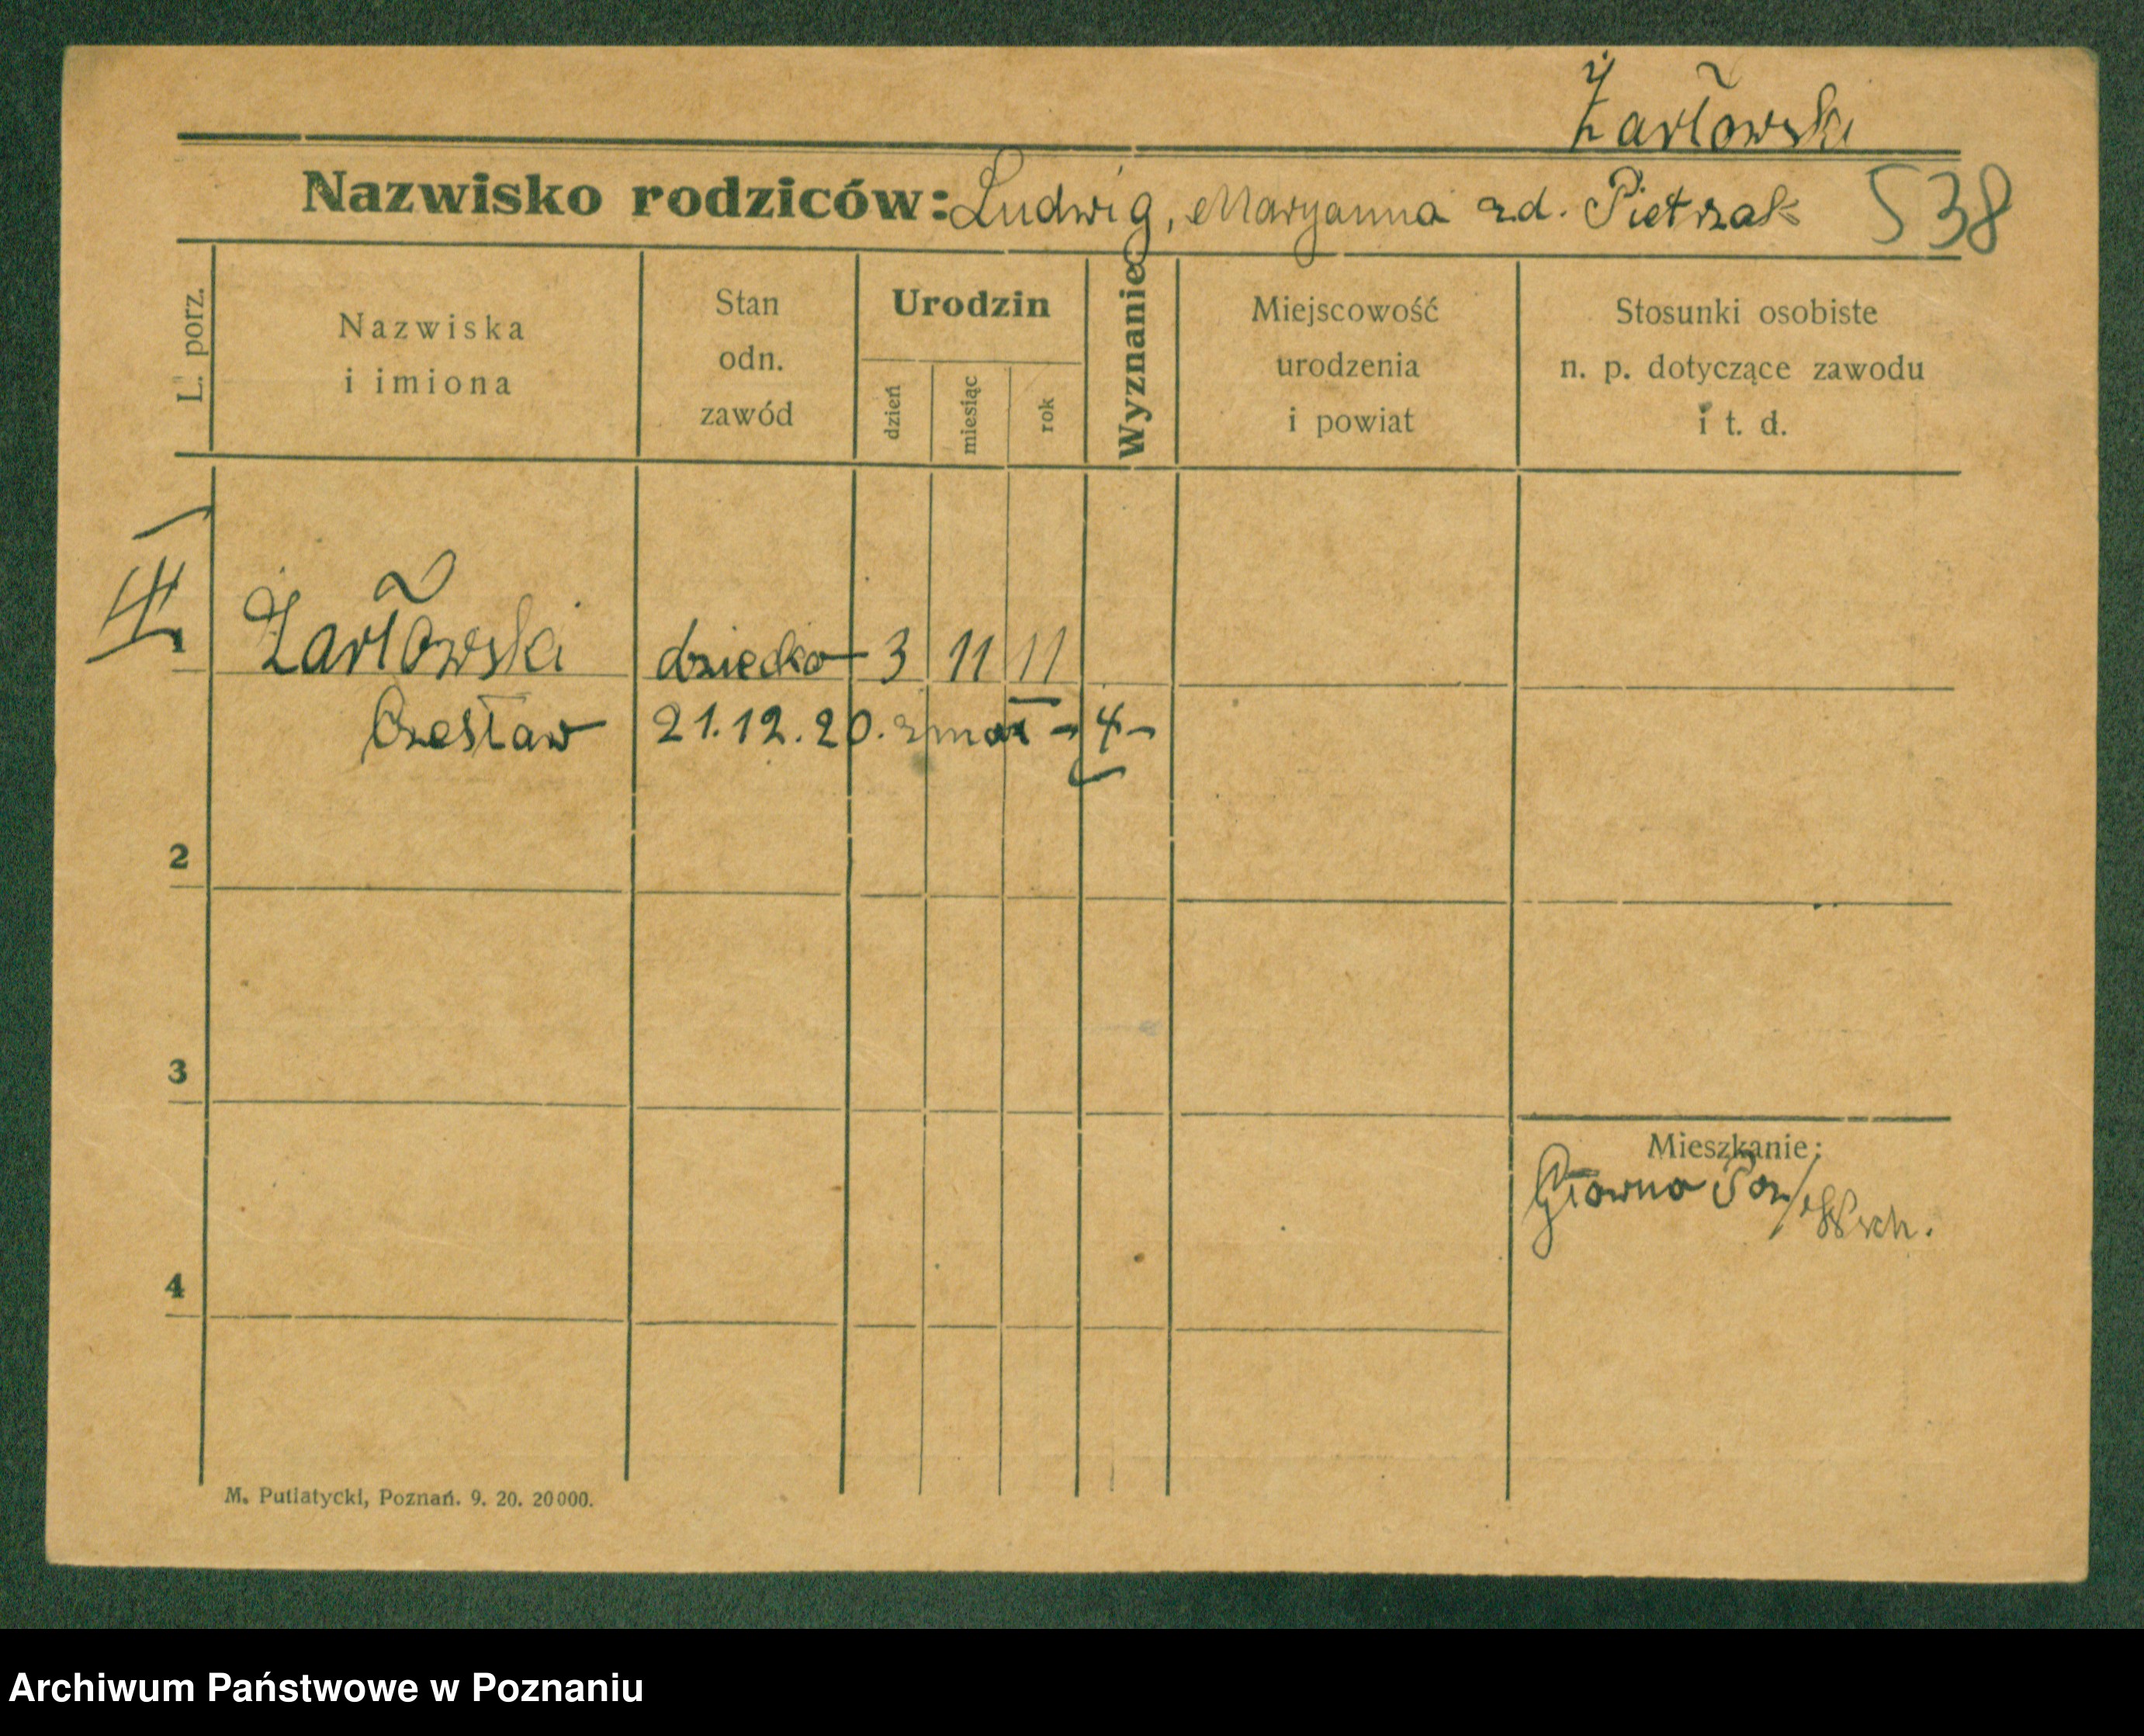 Żarłowski
Nazwisko rodziców: Ludwig, Maryanna zd. Pietrzak 538
L. porz.
Nazwiska
i imiona
Stan
odn.
zawód
Urodzin
dzień
miesiąc
rok
Wyznanie
Miejscowość
urodzenia
i powiat
Stosunki osobiste
n. p. dotyczące zawodu
i t. d.
1 Żarłowski dziecko 3 11 11
Czesław 21.12.20. zmarł
2
3
Mieszkanie:
Główno Poz/Wsch.
4
M. Putiatycki, Poznań. 9. 20. 20000.
Archiwum Państwowe w Poznaniu